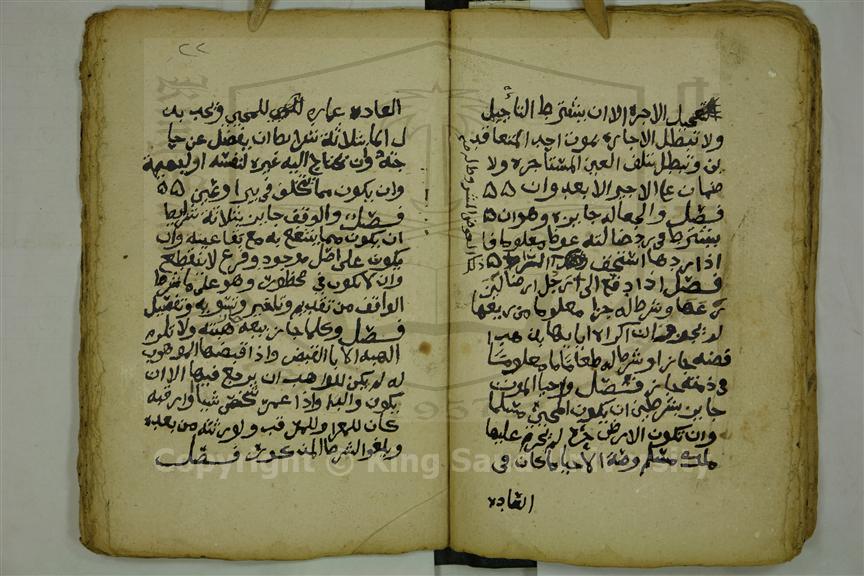 تعجيل الاجرة الا ان يشترط التأجيل
ولا تبطل الاجارة بموت احد المتعاقد
ين وتبطل بتلف العين المستاجرة ولا
ضمان على الاجير الا بعدوان
فصل والجعالة جايزة وهو ان
يشترط في رد ضالته عوضا معلوما فا
ذا ردها استحق العوض الشروط له
فصل اذا دفع الى رجل ارضا ليز
رعها وشرط له جزءا معلوما من ريعها
لم يجز وان اكراه اياها بذهب او
فضة جاز او شرط له طعاما معلوما
في ذمته جاز فصل واحيا الموت
جايز بشرطين ان يكون المحيي مسلما
وان تكون الارض لم يجر عليها
ملك مسلم وصفة الاحيا ما كان في
العادة
٢٢
العادة عمارة للمحيي ويجب بذ
ل الما بثلاثة شرايط ان يفضل عن حا
جته وان يحتاج اليه غيره لنفسه او لبهيمة
وان يكون مما يتخلق في بير او عين
فصل والوقف جايز بثلاثة شرايط
ان يكون مما ينتفع به مع بقا عينه وان
يكون على اصل موجود وفرع لا ينقطع
وان لا يكون في محظور وهو على ما شرط
الواقف من تقديم وتاخير وتسوية وتفضيل
فصل وكلما جاز بيعه هبته ولا تلزم
الهبة الا بالقبض واذا قبضها الموهوب
له لم يكن للواهب ان يرجع فيها الا ان
يكون والدا واذا اعمر شخص شيا وارقبه
كان للمعمر وللمرقب ولورثته من بعده
ويلغوا الشرط المذكور فصل
Copyright © King Saud University
1957